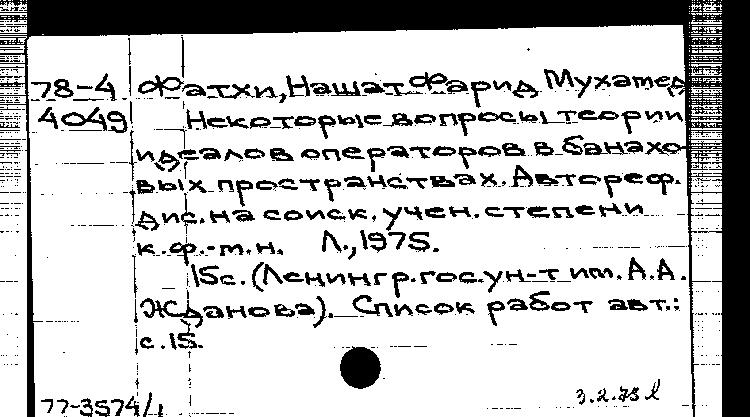 78-4 Фатхи, Нашат Фарид Мухамед
4049 Некоторые вопросы теории
идеалов операторов в банахо-
вых пространствах. Автореф.
дис. на соиск. учен. степени
к.ф.-т.н. Л., 1975.
15с. (Ленингр. гос. ун-т им. А.А.
Жданова). Список работ авт.:
с.15.
77-3574/1 3.2.75